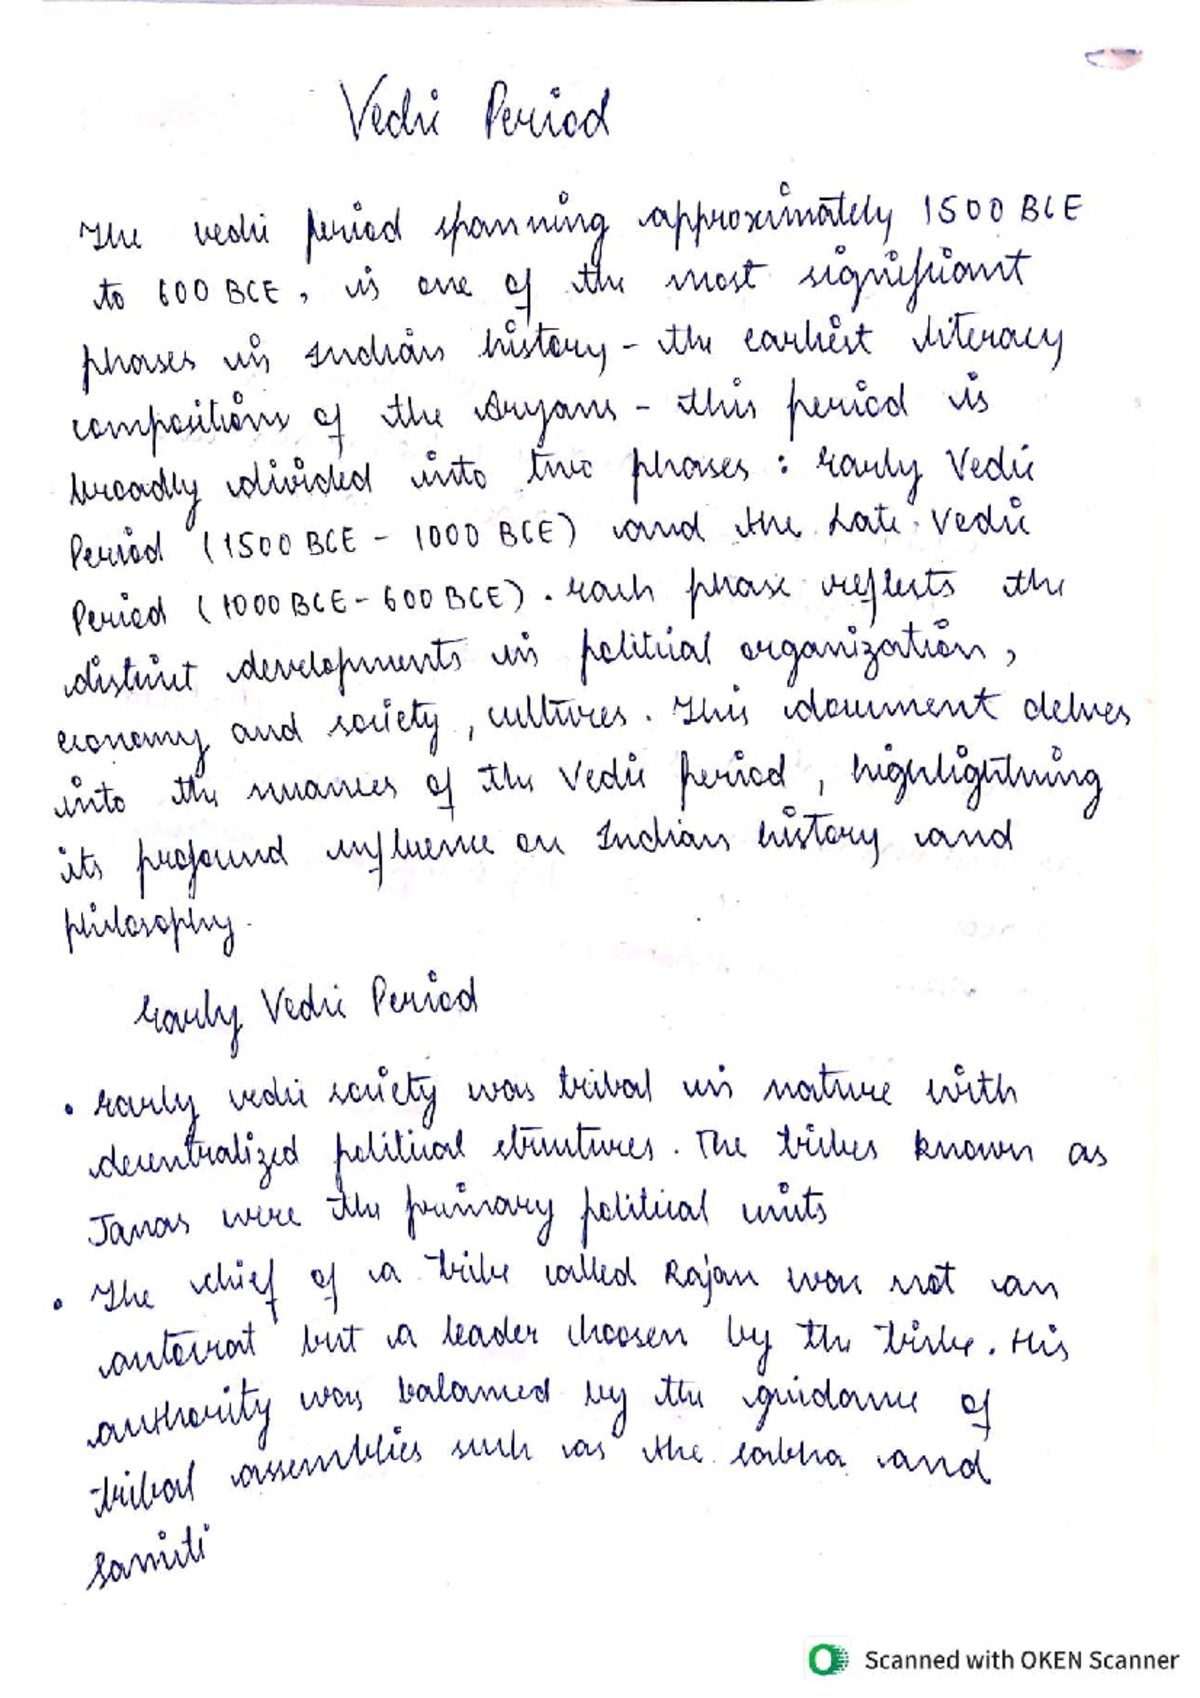 Vedic Period
The vedic period spanning approximately 1500 BCE
to 600 BCE, is one of the most significant
phases in Indian history - the earliest literacy
compositions of the Aryans - this period is
broadly divided into two phases : Early Vedic
Period (1500 BCE - 1000 BCE) and the Late Vedic
Period (1000 BCE - 600 BCE). Each phase reflects the
distinct developments in political organization,
economy and society, cultures. This document delves
into the nuances of the Vedic period, highlightning
its profound influence on Indian history and
philosophy.
Early Vedic Period
• Early vedic society was tribal in nature with
decentralized political structures. The tribes known as
Janas were the primary political units
• The chief of a tribe called Rajan was not an
autocrat but a leader choosen by the tribe. His
authority was balanced by the guidance of
tribal assemblies such as the sabha and
Samiti
Scanned with OKEN Scanner